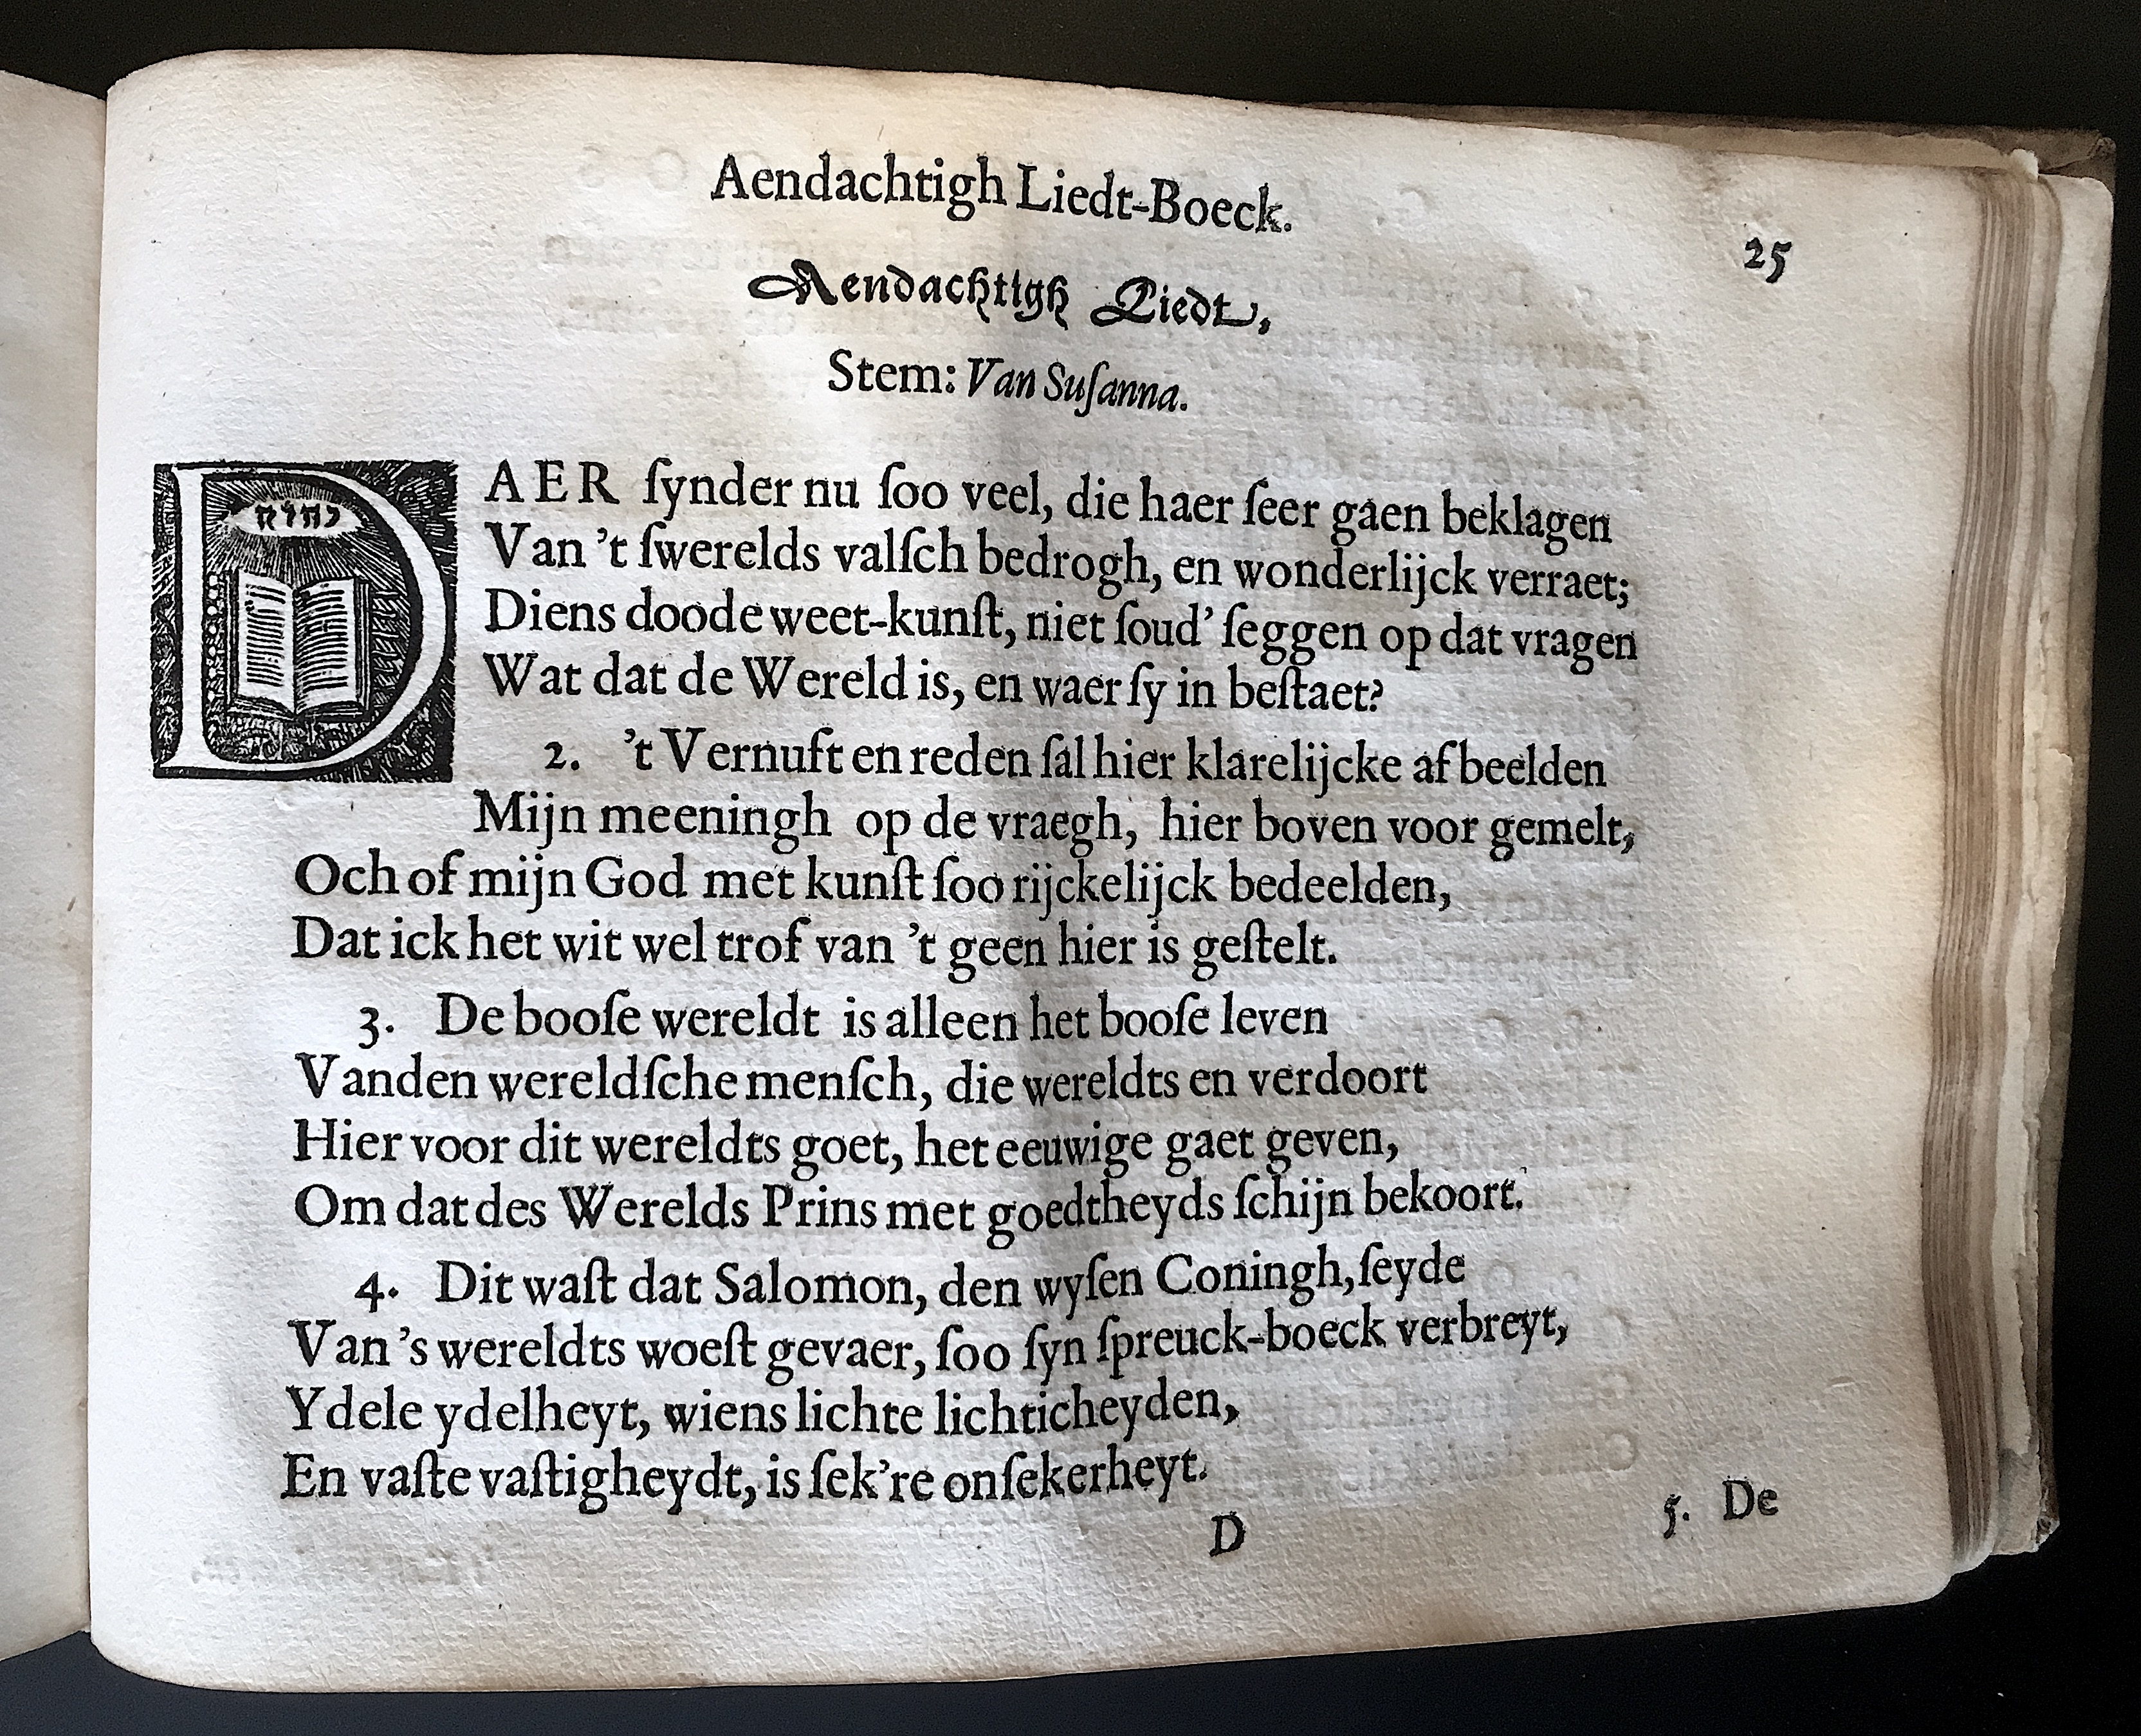 Aendachtigh Liedt-Boeck.
25
Aendachtigh Liedt,
Stem: Van Suſanna.
DAER ſynder nu ſoo veel, die haer ſeer gaen beklagen
Van 't ſwerelds valſch bedrogh, en wonderlijck verraet;
Diens doode weet-kunſt, niet ſoud' ſeggen op dat vragen
Wat dat de Wereld is, en waer ſy in beſtaet?
2. 't Vernuft en reden ſal hier klarelijcke af beelden
Mijn meeningh op de vraegh, hier boven voor gemelt,
Och of mijn God met kunſt ſoo rijckelijck bedeelden,
Dat ick het wit wel trof van 't geen hier is geſtelt.
3. De booſe wereldt is alleen het booſe leven
Vanden wereldſche menſch, die wereldts en verdoort
Hier voor dit wereldts goet, het eeuwige gaet geven,
Om dat des Werelds Prins met goedtheyds ſchijn bekoort.
4. Dit waſt dat Salomon, den wyſen Coningh, ſeyde
Van 's wereldts woeſt gevaer, ſoo ſyn ſpreuck-boeck verbreyt,
Ydele ydelheyt, wiens lichte lichticheyden,
En vaſte vaſtigheydt, is ſek're onſekerheyt.
D
5. De